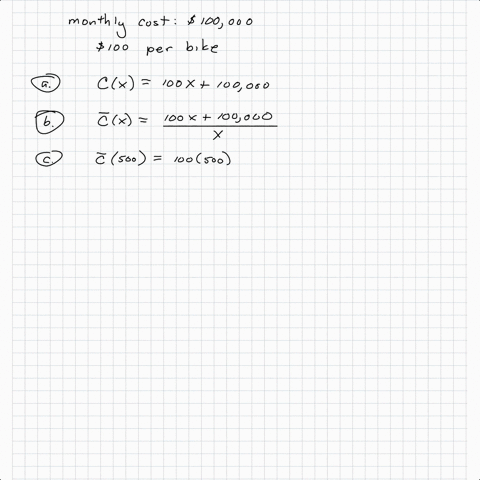 monthly cost: $100,000
$100 per bike
a. C(x) = 100x + 100,000
b. C̄(x) = 100x + 100,000
x
c. C̄(500) = 100(500)